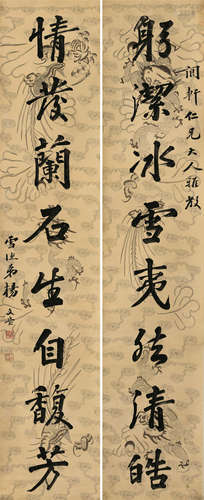 躬潔冰雪夷然清皓
润軒仁兄大人雅教
情發蘭石生自馥芳
雪漁弟楊文瑩